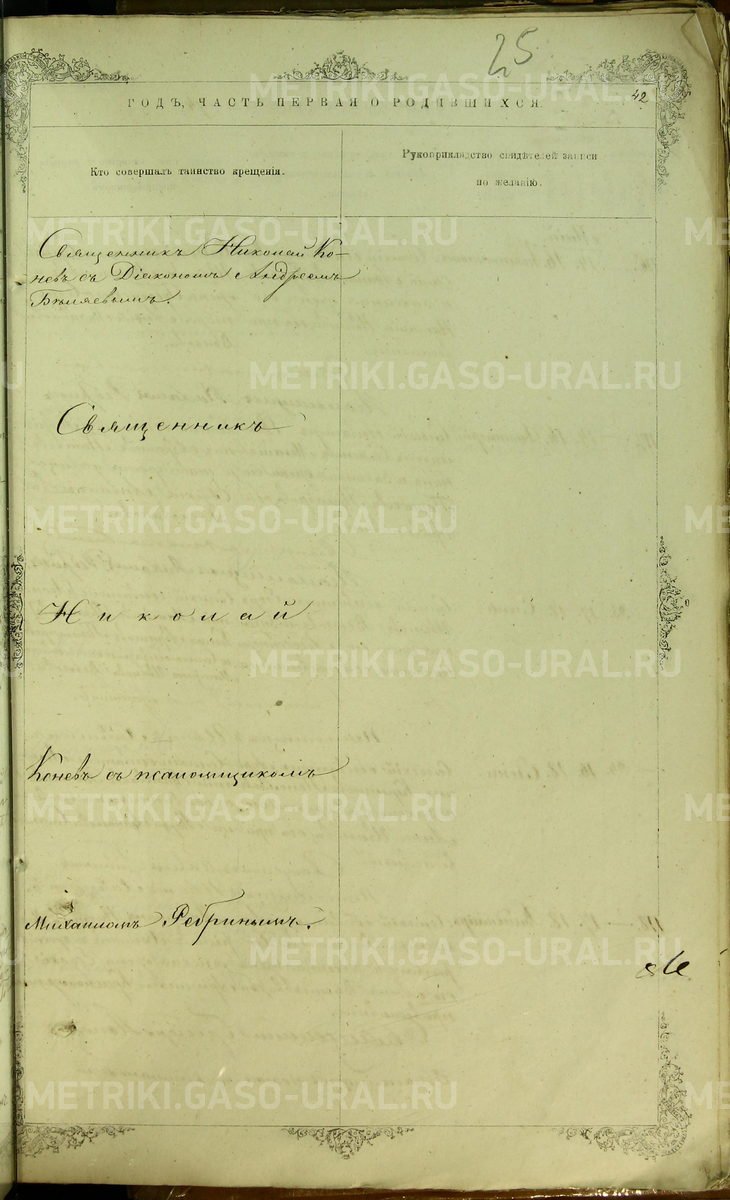 25
42
ГОДЪ, ЧАСТЬ ПЕРВАЯ О РОДИВШИХСЯ.
Кто совершалъ таинство крещенія.
Рукоприкладство свидѣтелей записи
по желанію.
Священникъ Николай Ко-
невъ съ Діакономъ Андреемъ
Бѣляевымъ.
Священникъ
Николай
Коневъ съ псаломщикомъ
Михаиломъ Ребринымъ.
METRIKI.GASO-URAL.RU